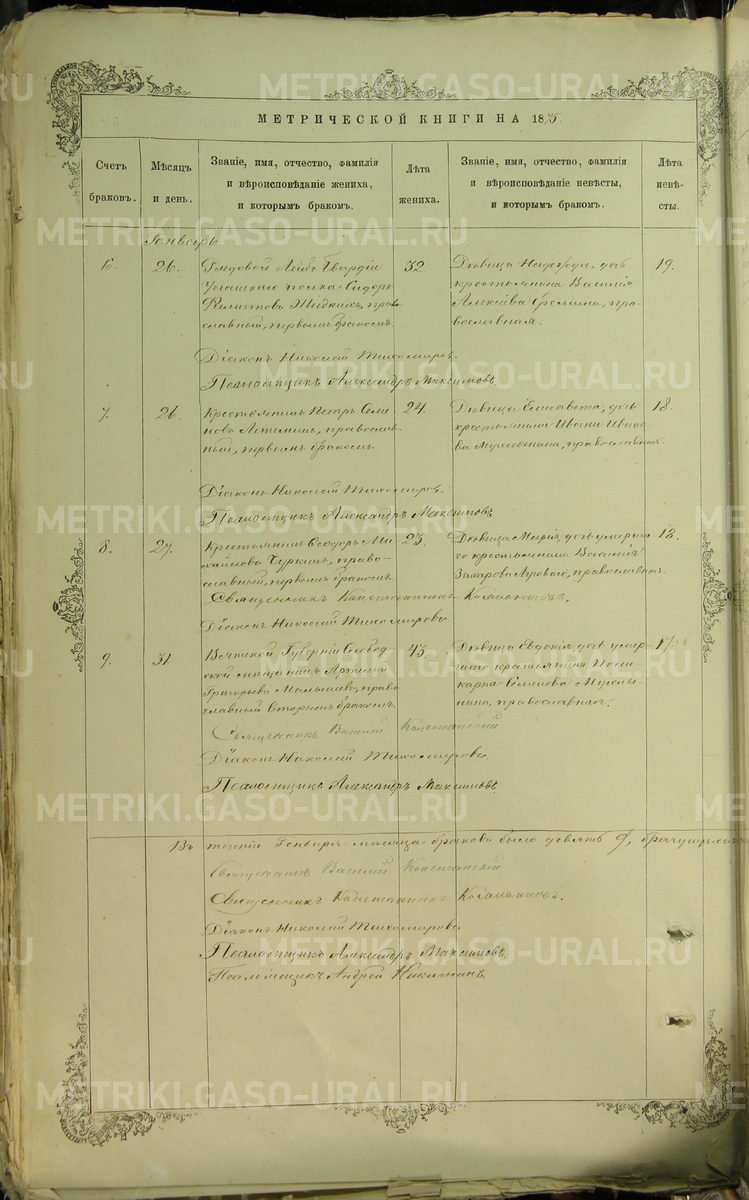 МЕТРИЧЕСКОЙ КНИГИ НА 1875
Счетъ браковъ.
Мѣсяцъ и день.
Званіе, имя, отчество, фамилія
и вѣроисповѣданіе жениха,
и которымъ бракомъ.
Лѣта жениха.
Званіе, имя, отчество, фамилія
и вѣроисповѣданіе невѣсты,
и которымъ бракомъ.
Лѣта невѣ-
сты.
Генварь
6. 26.
Рядовой Лейбъ Гвардіи
Уланскаго полка Сидоръ
Филипповъ Жидкихъ, пра-
славный, первымъ бракомъ.
32
Дѣвица Надежда, дочь
крестьянина Василія
Алексѣева Еремина, пра-
вославная.
19.
Діаконъ Николай Тихомировъ.
Псаломщикъ Александръ Максимовъ
7. 26.
Крестьянинъ Петръ Семи-
новъ православ-
ный, первымъ бракомъ
24.
Дѣвица Елисавета, дочь
крестьянина Ивана Ивано-
ва православная
18.
Діаконъ Николай Тихомировъ.
Псаломщикъ Александръ Максимовъ.
8. 27.
Крестьянинъ Ѳеодоръ Ми-
хайловъ право-
славный, первымъ бракомъ.
23.
Дѣвица Марія, дочь умерша-
го крестьянина Василія
Захарова православная.
18.
Священникъ Константинъ
Діаконъ Николай Тихомировъ
9. 31.
Вятской Губерніи Слобод-
ской мѣщанинъ Артемій
Григорьевъ Малышевъ, право
славный Вторымъ бракомъ.
43.
Дѣвица Евдокія дочь умер-
шаго крестьянина Поли-
карпа Семенова
православная.
17
Священникъ Василій
Діаконъ Николай Тихомировъ
Псаломщикъ Александръ Максимовъ.
Въ теченіи Генваря мѣсяца браковъ было девять 9,
Священникъ Василій
Священникъ Константинъ
Діаконъ Николай Тихомировъ
Псаломщикъ Александръ Максимовъ.
Псаломщикъ Андрей Никитинъ.
METRIKI.GASO-URAL.RU